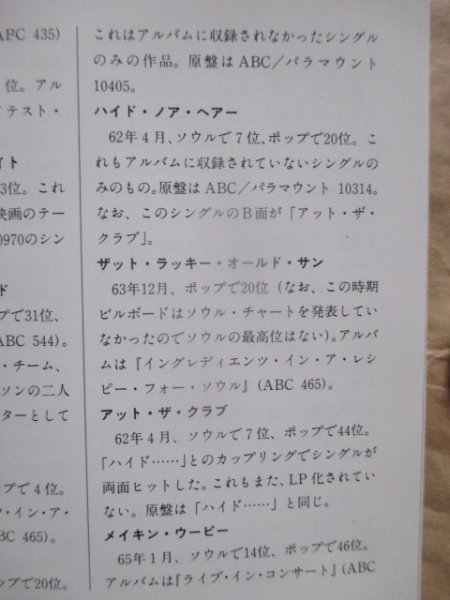 PC 435)
位。アル
イテスト・
イト
3位。これ
映画のテー
0970のシン
ド
プで31位、
ABC 544)。
・チーム、
ソンの二人
ターとして
プで4位。
・イン・ア・
BC 465)。
ップで20位。
これはアルバムに収録されなかったシングル
のみの作品。原盤はABC／パラマウント
10405。
ハイド・ノア・ヘアー
62年4月、ソウルで7位、ポップで20位。こ
れもアルバムに収録されていないシングルの
みのもの。原盤はABC／パラマウント 10314。
なお、このシングルのB面が「アット・ザ・
クラブ」。
ザット・ラッキー・オールド・サン
63年12月、ポップで20位（なお、この時期
ビルボードはソウル・チャートを発表してい
なかったのでソウルの最高位はない）。アルバ
ムは『イングレディエンツ・イン・ア・レシ
ピー・フォー・ソウル』(ABC 465)。
アット・ザ・クラブ
62年4月、ソウルで7位、ポップで44位。
「ハイド……」とのカップリングでシングルが
両面ヒットした。これもまた、LP化されてい
ない。原盤は「ハイド……」と同じ。
メイキン・ウーピー
65年1月、ソウルで14位、ポップで46位。
アルバムは『ライブ・イン・コンサート』(ABC